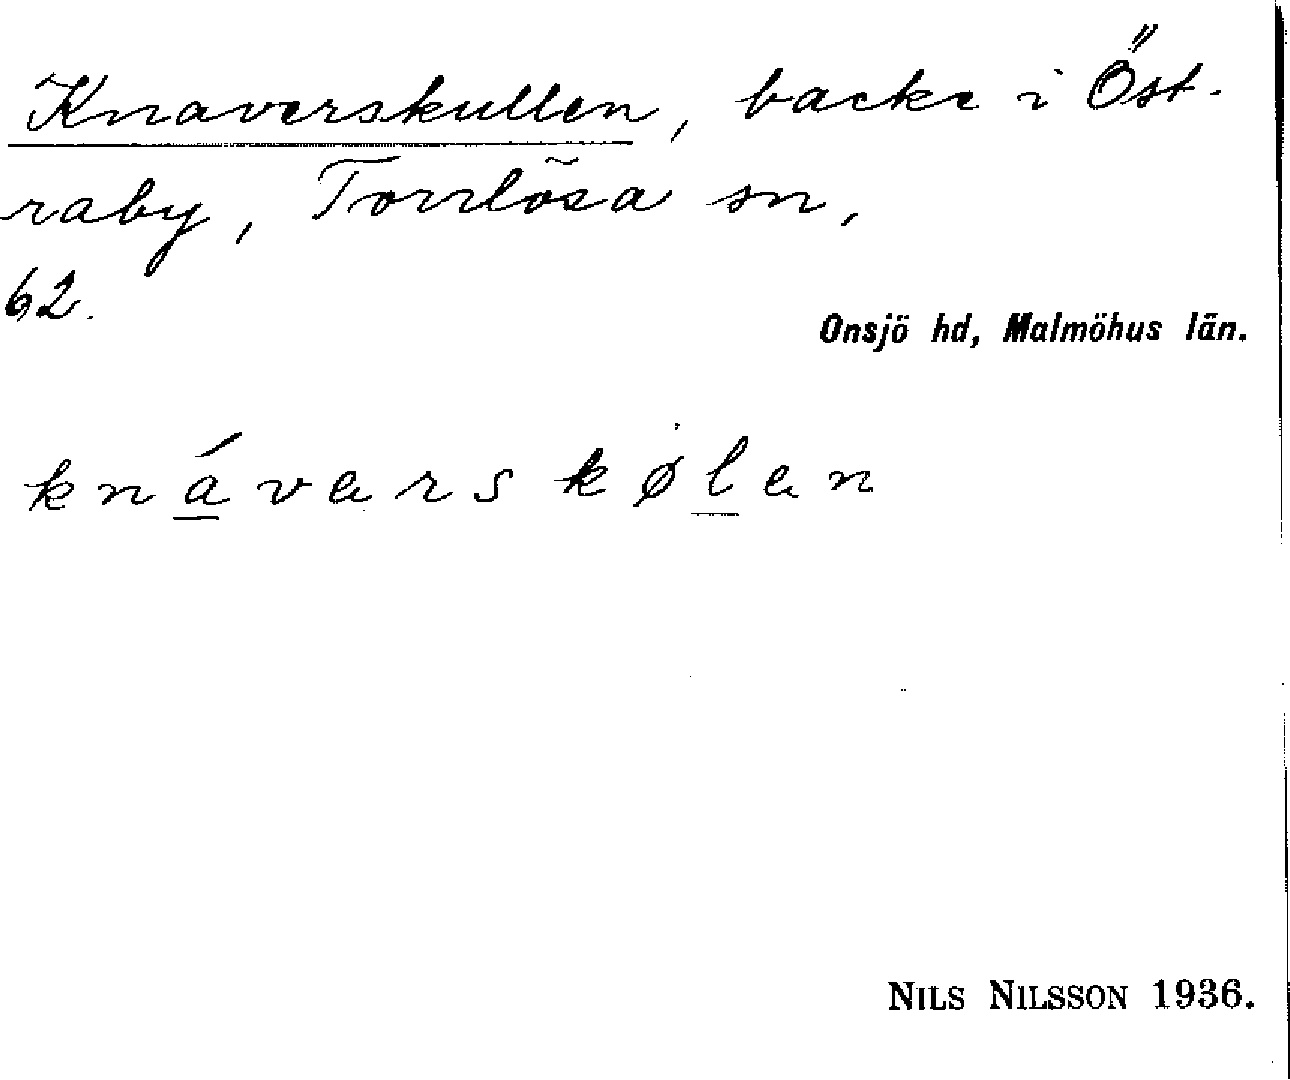 Knaverskullen, backe i Öst-
raby, Torrlösa sn,
62.
Onsjö hd, Malmöhus län.
knávarskølan
NILS NILSSON 1936.